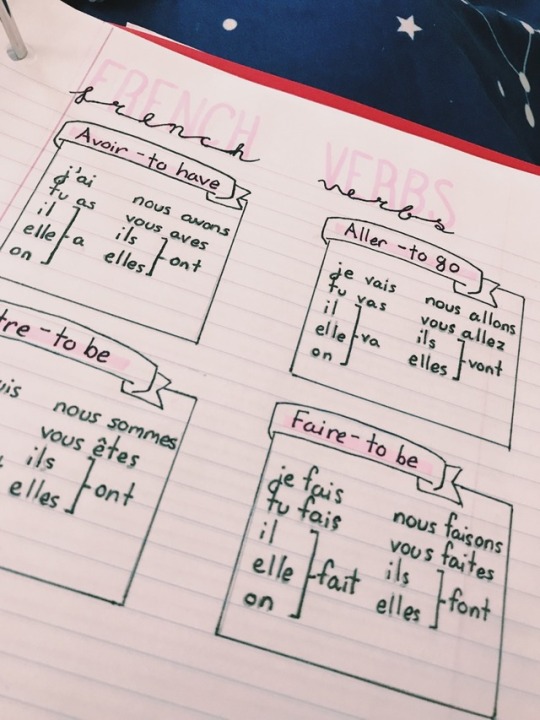 FRENCH
french
VERBS
verbs
Avoir - to have
j'ai
tu as
il
elle
on
a
nous avons
vous aves
ils
elles
ont
Aller - to go
je vais
tu vas
il
elle
on
va
nous allons
vous allez
ils
elles
vont
tre - to be
uis
nous sommes
vous êtes
ils
elles
ont
Faire - to be
je fais
tu fais
il
elle
on
fait
nous faisons
vous faites
ils
elles
font